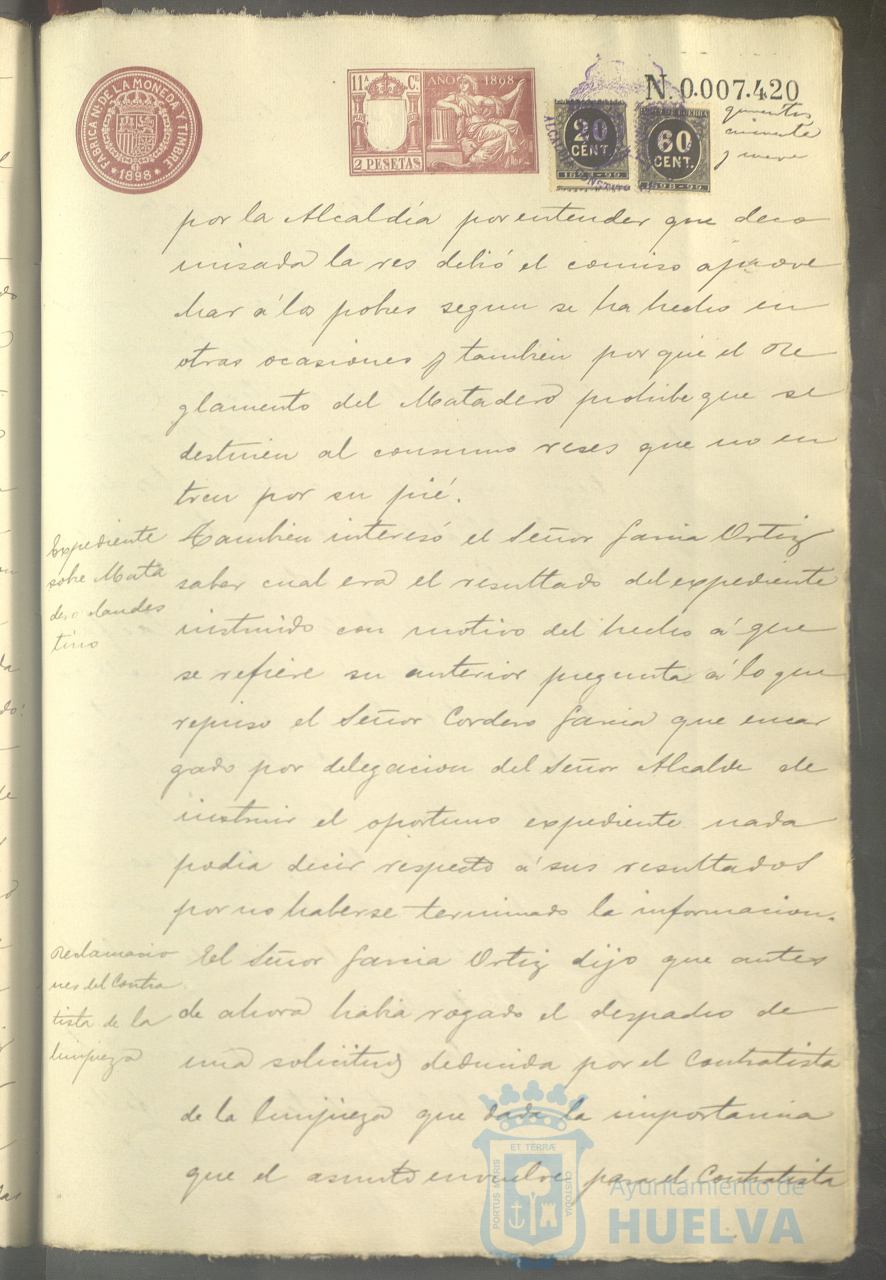 FABRICA NL. DE LA MONEDA Y TIMBRE
* 1898 *
11ª Cᴱ AÑO 1898
2 PESETAS
20 CENT
1898-99
60 CENT.
1898-99
N. 0.007.420
cincuenta
y nueve
por la Alcaldía por entender que deco
misada la res debió el comiso aprove
char á los pobres segun se ha hecho en
otras ocasiones y también por que el Re
glamento del Matadero prohibe que se
destinen al consumo reses que no en
tren por su pié.
Expediente
sobre Mata
dero clandes
tino
También interesó el Señor Garcia Ortiz
saber cual era el resultado del expediente
instruido con motivo del hecho á que
se refiere su anterior pregunta á lo que
repuso el Señor Cordero Garcia que encar
gado por delegacion del Señor Alcalde de
instruir el oportuno expediente nada
podia decir respecto á sus resultados
por no haberse terminado la informacion.
Reclamacio
nes del Contra
tista de la
limpieza
El Señor Garcia Ortiz dijo que antes
de ahora habia rogado el despacho de
una solicitud deducida por el Contratista
de la limpieza que dada la importancia
que el asunto envuelve para el Contratista
ET TERRÆ
PORTUS MARIS
CUSTODIA
Ayuntamiento de
HUELVA